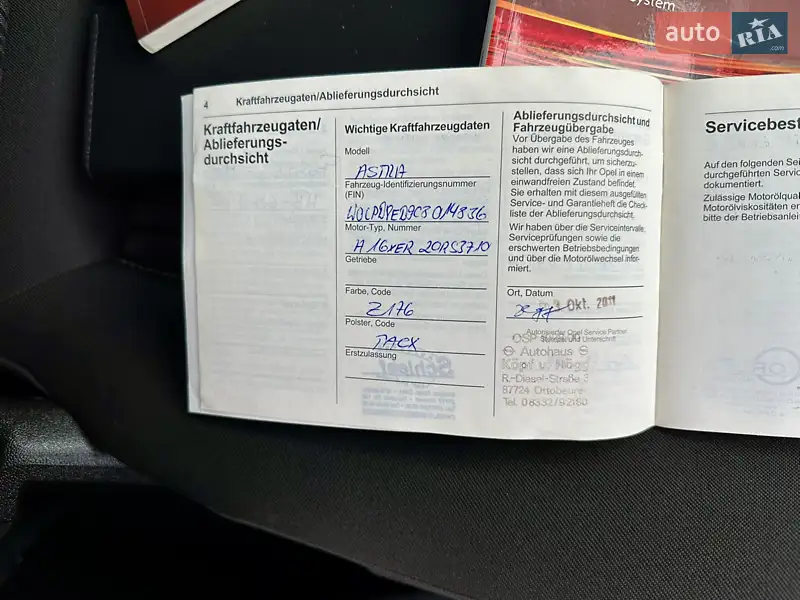 system
auto RIA
.com
4 Kraftfahrzeugaten/Ablieferungsdurchsicht
Kraftfahrzeugaten/
Ablieferungs-
durchsicht
Wichtige Kraftfahrzeugdaten
Modell
ASTRA
Fahrzeug-Identifizierungsnummer
(FIN)
Motor-Typ, Nummer
A16XER 20RS3710
Getriebe
Farbe, Code
Z176
Polster, Code
TACX
Erstzulassung
Ablieferungsdurchsicht und
Fahrzeugübergabe
Vor Übergabe des Fahrzeuges
haben wir eine Ablieferungsdurch-
sicht durchgeführt, um sicherzu-
stellen, dass sich Ihr Opel in einem
einwandfreien Zustand befindet.
Sie erhalten mit diesem ausgefüllten
Service- und Garantieheft die Check-
liste der Ablieferungsdurchsicht.
Wir haben über die Serviceintervalle,
Serviceprüfungen sowie die
erschwerten Betriebsbedingungen
und über die Motorölwechsel infor-
miert.
Ort, Datum
Okt. 2011
Autorisierter Opel Service Partner
Stempel und Unterschrift
OSP
Autohaus
Köpf u. Nägg
R.-Diesel-Straße 3
87724 Ottobeure
Tel. 08332/92160
Servicebest
Auf den folgenden Sei
durchgeführten Service
dokumentiert.
Zulässige Motorölqual
Motorölviskositäten en
bitte der Betriebsanlei